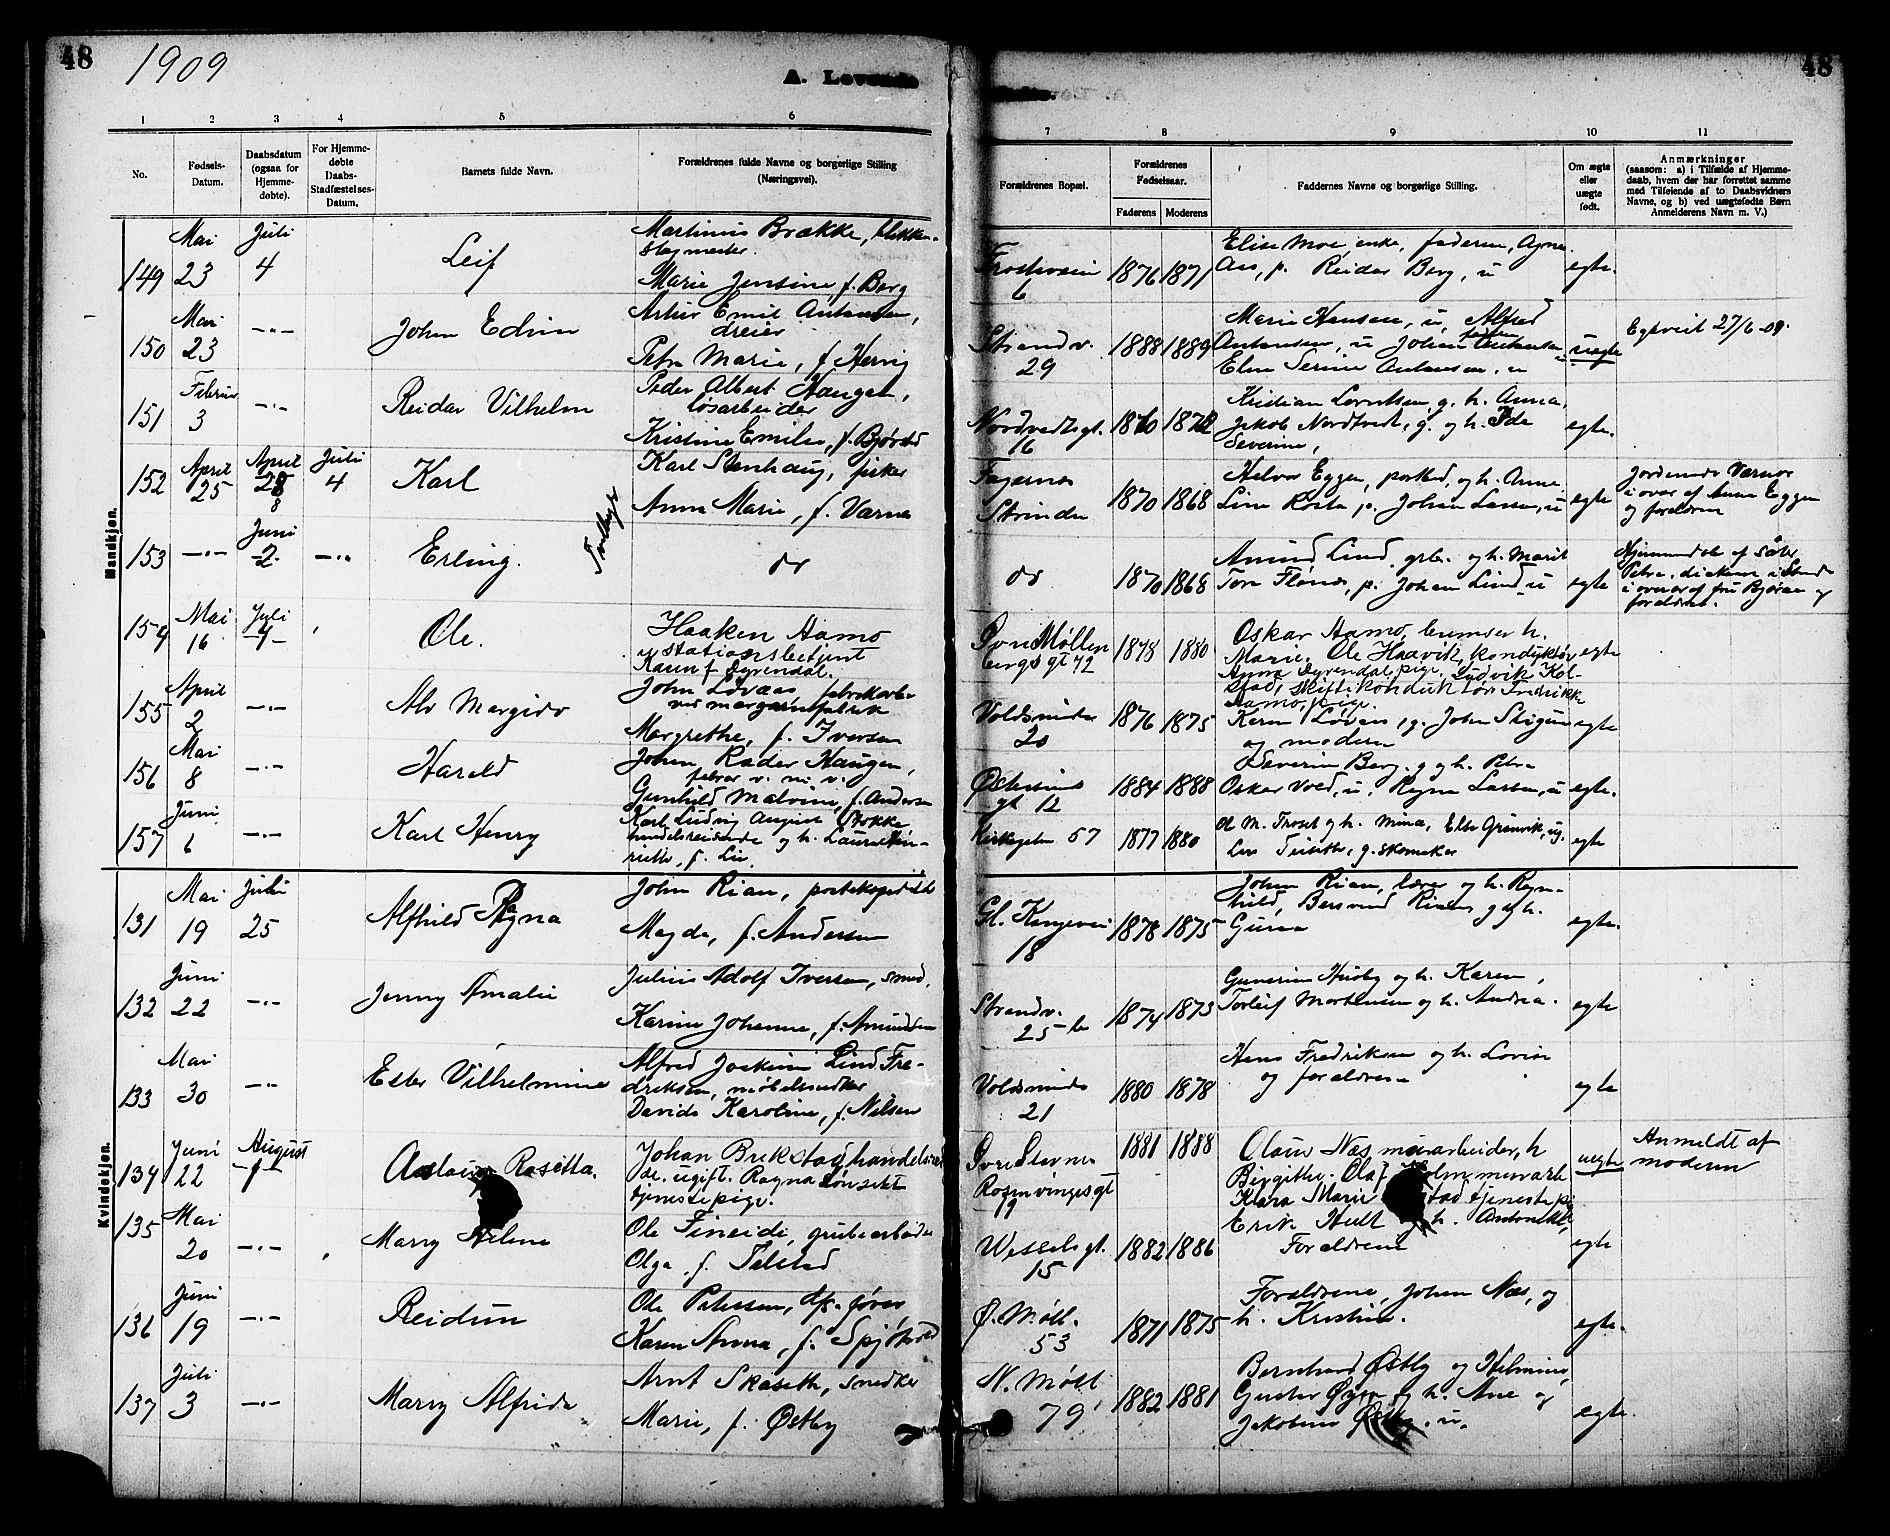 48
1909
A. Levende
48
1
2
3
4
5
6
7
8
9
10
11
No.
Fødsels-
Datum.
Daabsdatum
(ogsaa for
Hjemme-
døbte).
For Hjemme-
døbte
Daabs-
Stadfæstelses-
Datum.
Barnets fulde Navn.
Forældrenes fulde Navne og borgerlige Stilling
(Næringsvei).
Forældrenes Bopæl.
Forældrenes
Fødselsaar.
Faderens
Moderens
Faddernes Navne og borgerlige Stilling.
Om ægte
eller
uægte
født.
Anmærkninger
(saasom: a) i Tilfælde af Hjemme-
daab, hvem der har forrettet samme
med Tilføiende af to Daabsvidners
Navne, og b) ved uægtefødte Børn
Anmelderens Navn m. V.)
Mandkjøn.
149
Mai
23
Juli
4
Leif
Martinus Brække, blikken-
slagmester.
Marie Jensine f. Berg
6
1876 1871
Elise Moe, enke, faderen, Agnes
Aas, p. Reidar Berg, u
egte.
150
Mai
23
—"—
John Edvin
Artur Emil Antonsen,
dreier
Petra Marie, f.
Strandv.
29
1888 1889
Marie Hansen, u, Alfred
Antonsen, u Johan Antonsen
Elen Serine Antonsen, u
uegte
27/6-09.
151
Februar
3
—"—
Reidar Vilhelm
Peder Albert Haugen,
løsarbeider
Kristine Emilie, f.
Nordvedtsgt.
16
1870 1872
Kristian Lorntsen, g. h. Anna,
Jakob Nordtvedt, g. og h. Ida
Severine,
egte.
152
April
25
April
28
Juli
4
Karl
Karl Stenhaug, fisker
Anna Marie, f. Værnes
Fagernes
Strinda
1870 1868
Halvor Eggen, og h. Anne
Line p. Johan Larsen, u
egte
i over af Anna Eggen
og forældrene
153
—"—
Juni
2
—"—
Erling.
Tvillinger
do
do
1870 1868
Amund Lind, og h. Marit
p. Johan Lind u
egte
Hjemmedøbt af
Petra,
i overvær af fru og
forældrene.
154
Mai
16
Juli
4
Ole.
Haaken Aamo
stationsbetjent
Karen f Dyrendal.
Øvre Møllen
bergs gt 72
1878 1880
Oskar Aamo, bremser h.
Marie. Ole Haavik, konduktør
Anna Dyrendal, pige. Ludvik Kol-
stad, skiftekonduktør Fredrikke
Aamo, pige.
egte
155
April
2
—"—
Alv Margido
John Løvaas, fabrikarb.
ved margarinfabrik
Margrethe, f. Iversen
Voldsminde
20
1876 1875
Karen Løvaas, g. John
og moderen
egte
156
Mai
8
—"—
Harald
Johan Haugen,
Gunhild Malvine, f. Andersen
Østersunds
gt 12
1884 1888
Severin Berg, g og h. Petra
Oskar Vold, u, Ragna Larsen, u
egte.
157
Juni
6
—"—
Karl Henry
Karl Ludvig August Stokke
handelsreisende og h. Laura Hen-
riette, f. Lie
Kirkegaten 57
1877 1880
O. M. Troset og h. Mina, Elba Grønvik, ug.
g. skomaker
egte
Kvindekjøn.
131
Mai
19
Juli
25
Alfhild Ragna
John Rian, postekspeditør
Magda, f. Andersen
Gl. Kongevei
18
1878 1875
Johan Rian, lærer og h. Ragn-
hild, Bersvend Rian g og h.
Gurua
egte.
132
Juni
22
—"—
Jenny Amalie
Julius Adolf Iversen, smed,
Karine Johanne, f. Amundsen
Strandv.
25 b
1874 1873
Gunerius Husby og h. Karen,
Torleif Mortensen og h. Andrea.
egte
133
Mai
30
—"—
Ester Vilhelmine
Alfred Joakim Lind Fre-
driksen, møbelsnedker
Davida Karoline, f. Nilsen
Voldsminde
21
1880 1878
Hans Fredriksen og h. Lovise
og forældrene
egte
134
Juni
22
August
1
Aslaug Rosetta.
Johan Brekstad handelsreisen
de. ugift. Ragna
tjenestepige.
Øvre Stavne
Rosenvingesgt
19
1881 1888
Olaus Næs murarbeider, h
Birgitte. Olaf Holm murarb
Klara Marie tjenestepi
uegte
Anmeldt af
moderen
135
Mai
20
—"—
Marry Helene
Ole Fineide, grubearbeider
Olga, f. Telstad
Wesselsgt.
15
1882 1886
Erik Hult og h. Antonette,
Forældrene
egte
136
Juni
19
—"—
Reidun
Ole Petersen,
Karen Anna, f. Spjøtvold
Ø. Møll.
53
1871 1875
Forældrene, Johan Næs, og
h. Kristine.
egte.
137
Juli
3
—"—
Marry Alfrida
Arnt Skaseth, snedker
Marie, f. Østby
N. Møll
79
1882 1881
Bernhard Østby og Helmine,
Gustav Øyen og h. Ane og
Jakobine Østby, u.
egte.